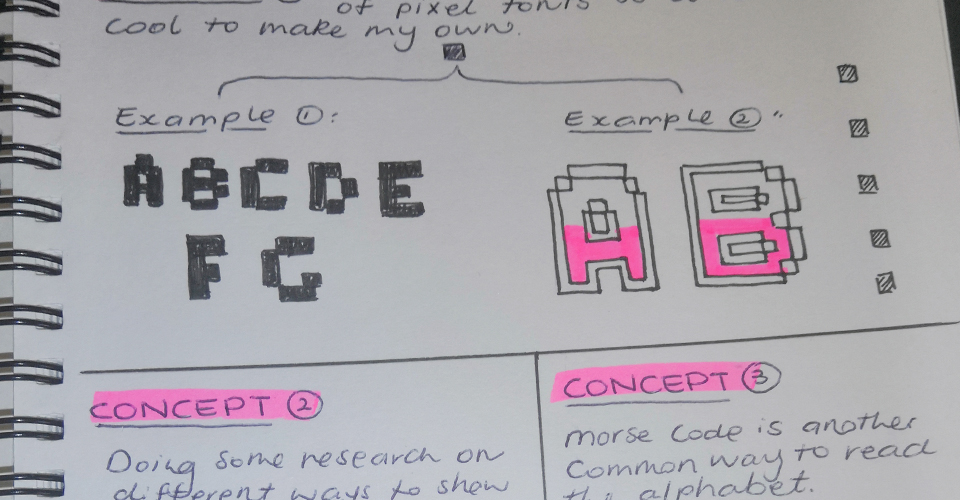 of pixel fonts
cool to make my own.
Example ①:
A B C D E
F G
Example ②:
A B
CONCEPT ②
Doing some research on
different ways to show
CONCEPT ③
morse code is another
common way to read
the alphabet.